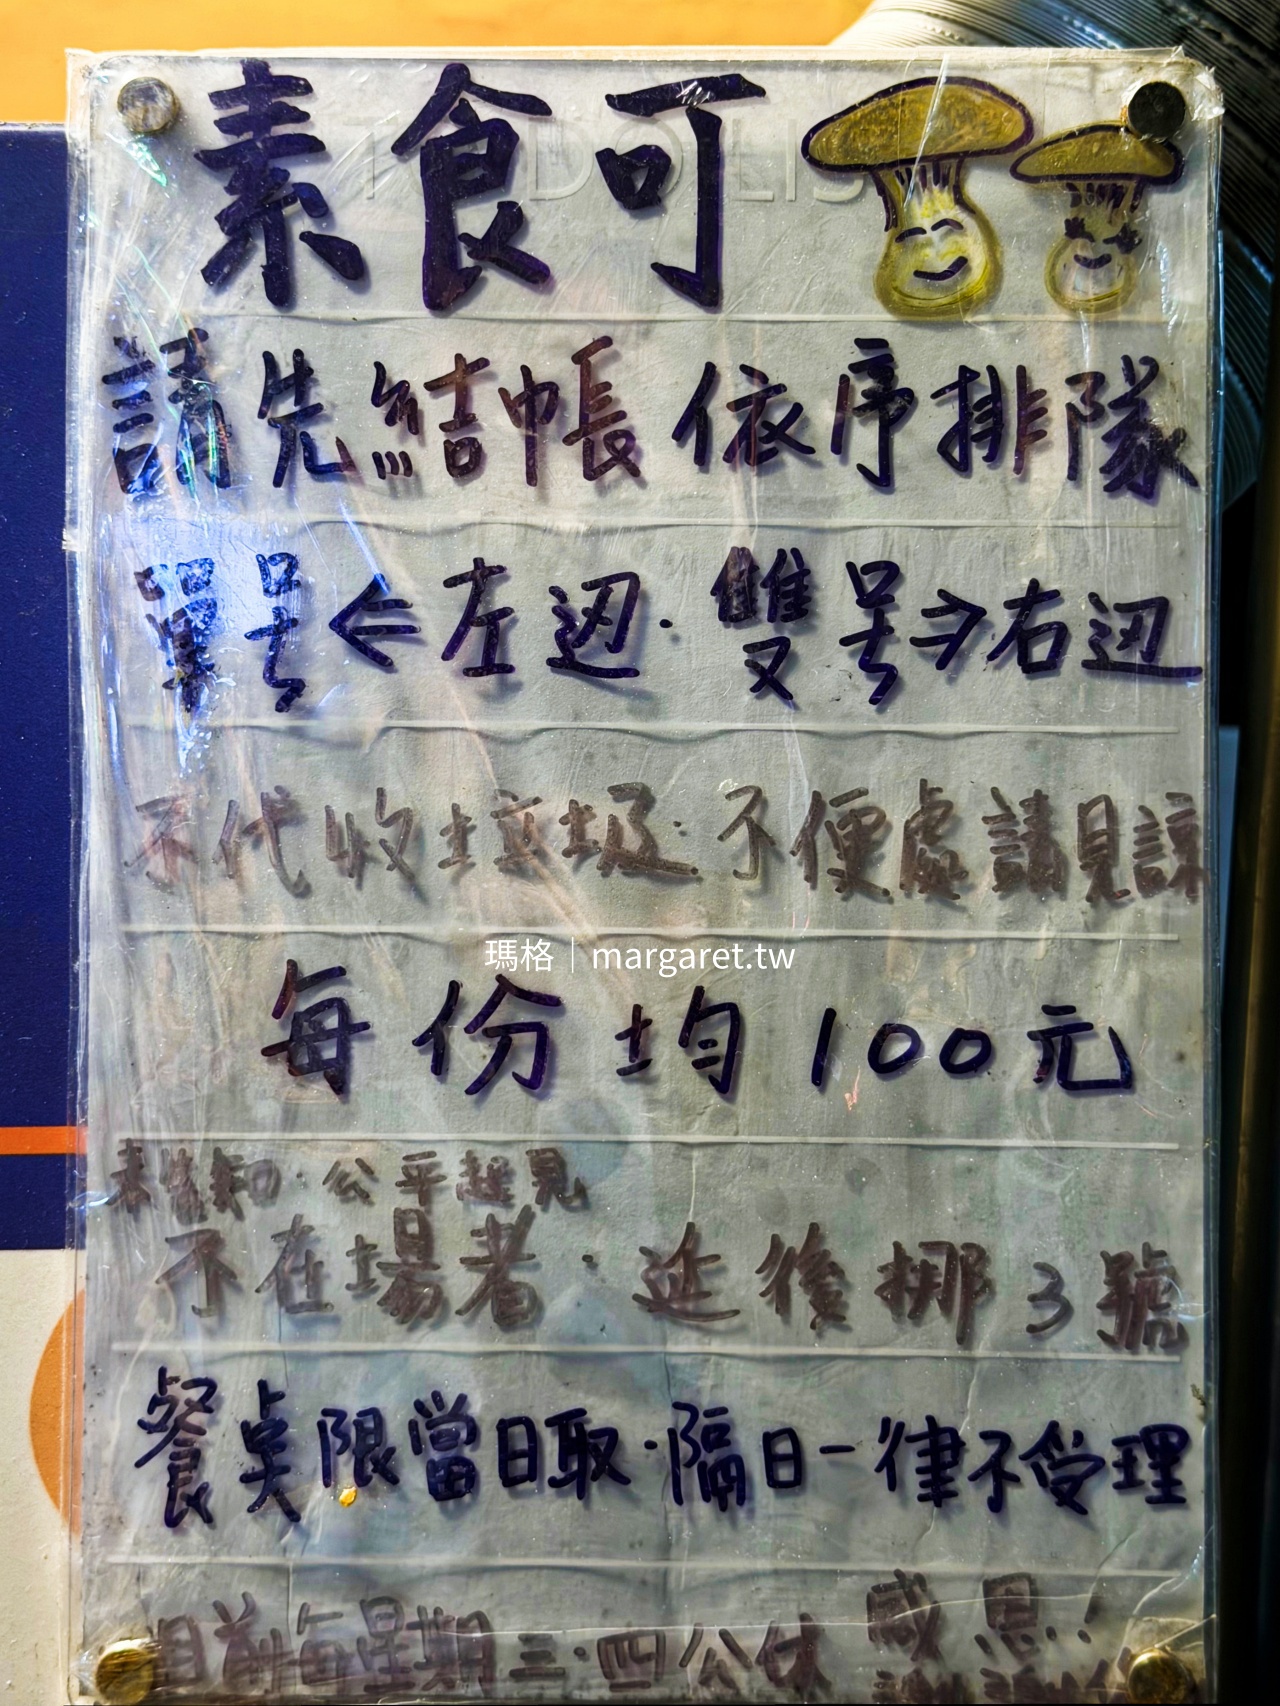 素食可
TO DO LIS
請先結帳 依序排隊
單号⇐左边·雙号⇒右边
不代收垃圾·不便處請見諒
瑪格｜margaret.tw
每份均100元
未告知·公平起見
不在場者·延後挪3號
餐點限當日取·隔日一律不受理
目前每星期三·四公休 感恩!